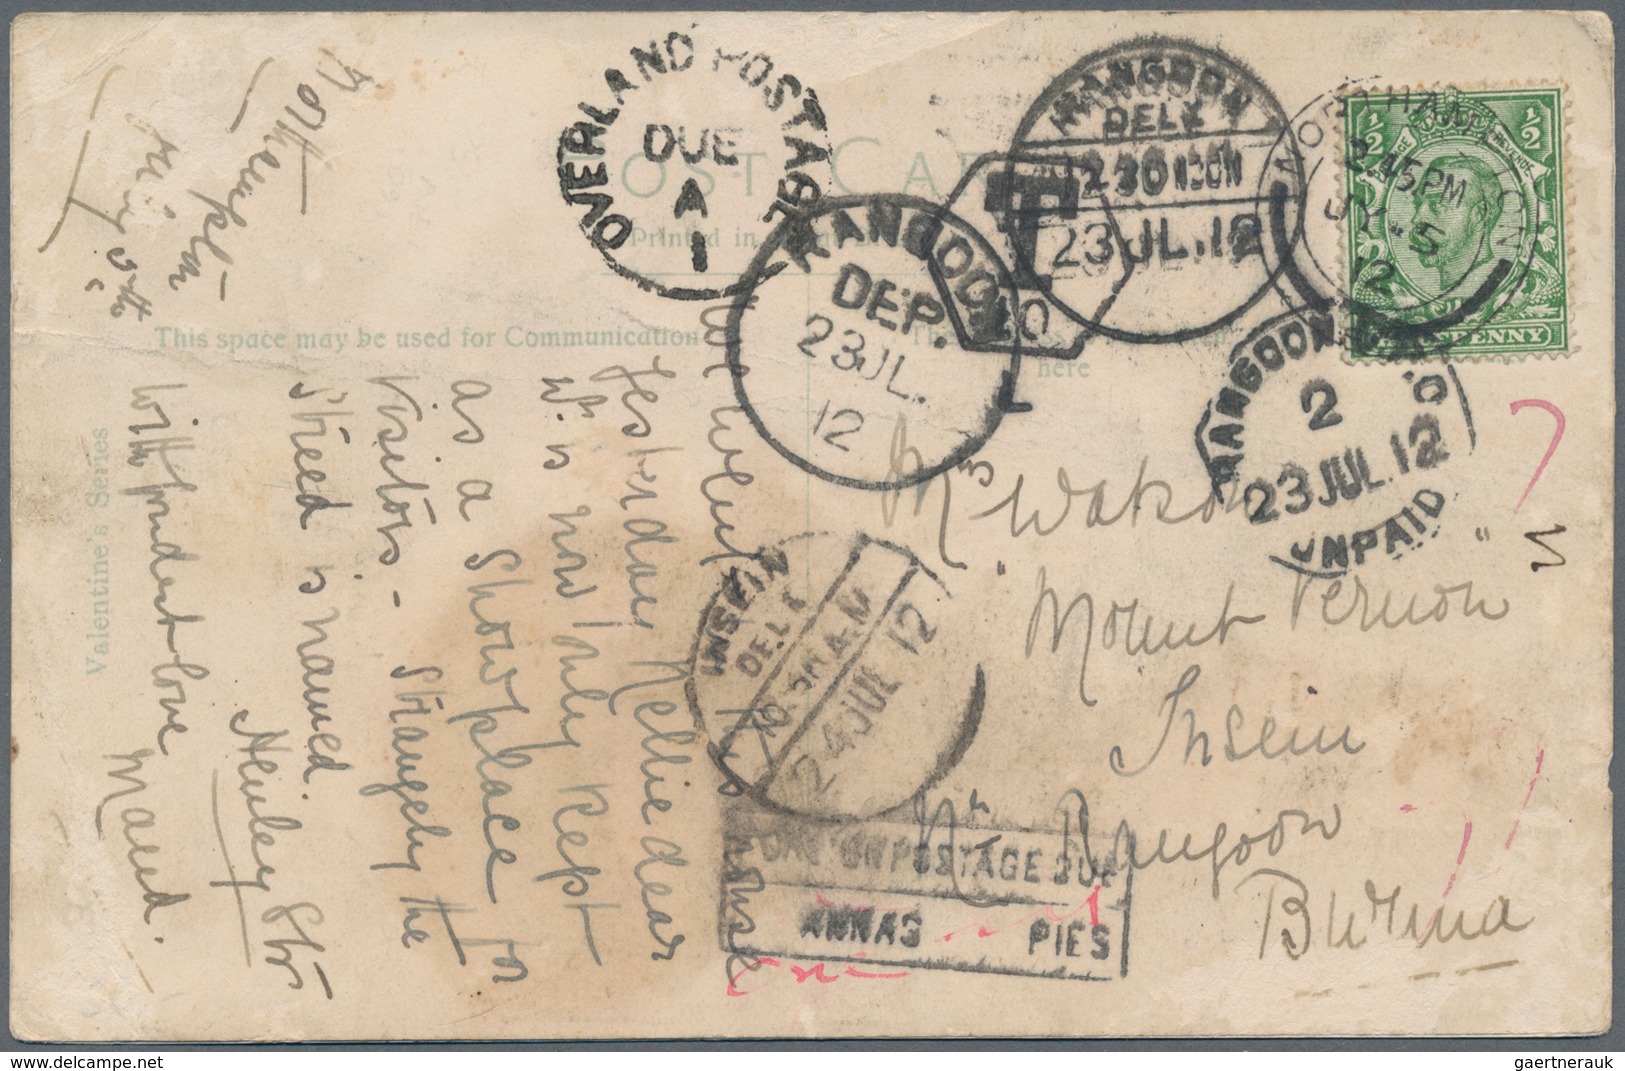 POST CARD
Printed in
This space may be used for Communication
here
Valentine's Series
OVERLAND POSTAGE
DUE
A
1
RANGOON
DEP.
23 JUL.
12
T
RANGOON
DELY
2 30 NOON
23 JUL.12
NORTHAMPTON
2.45 PM
JY 5
12
½ ½
POSTAGE REVENUE
HALFPENNY
RANGOON
2
23 JUL.12
UNPAID
INSEIN
DELY
10.30 A.M
24 JUL 12
POSTAGE DUE
ANNAS PIES
one
Northampton
July 5th
We went
Yesterday Nellie dear
it is now only kept
as a Show place for
Visitors - Strangely the
Street is named
Henley Str
With fondest love
Maud.
Mrs Watson
"Mount Vernon"
Insein
Nr Rangoon
Burma
gaertnerauk
www.delcampe.net